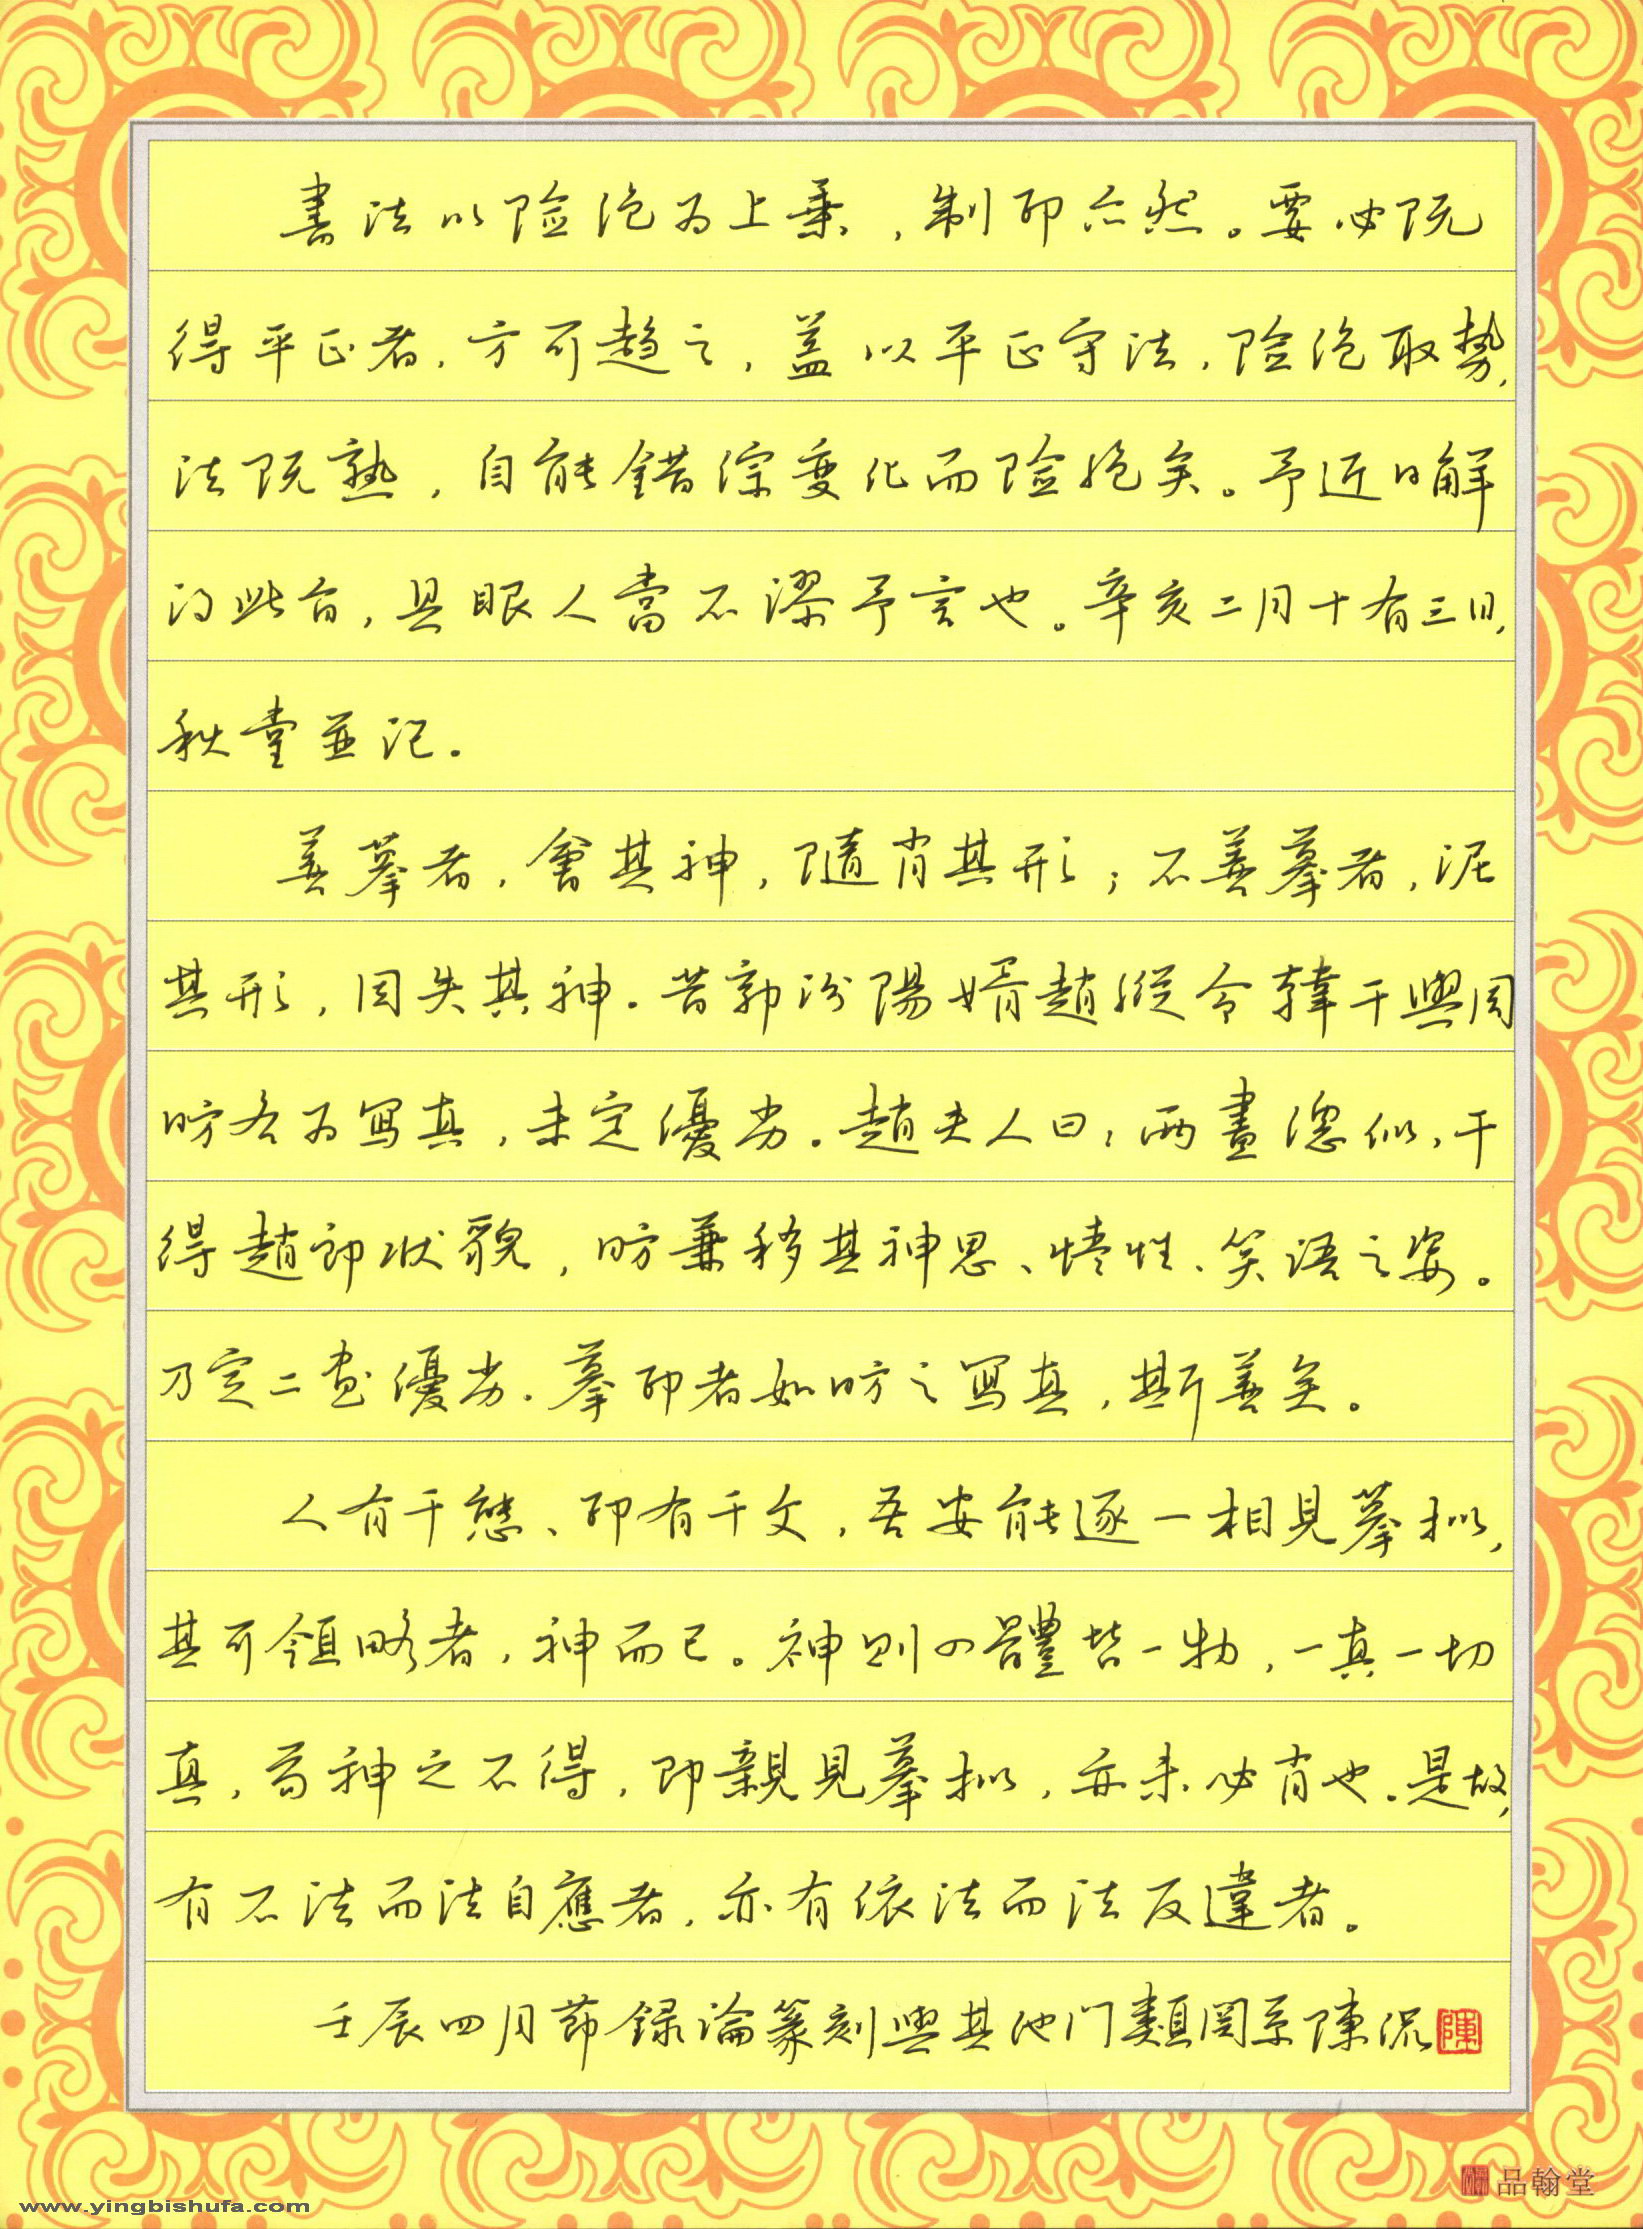 書法以险绝为上乗，制印亦然。要必既
得平正者，方可趋之，蓋以平正守法，险绝取勢，
法既熟，自能錯综变化而险绝矣。予近日解
得此旨，具眼人當不謬予言也。辛亥二月十有三日，
秋堂並记。
善摹者，會其神，隨肖其形；不善摹者，泥
其形，因失其神。昔郭汾陽婿趙縱令韓干與周
昉各为寫真，未定優劣。趙夫人曰：兩畫總似，干
得趙郎状貌，昉兼移其神思、情性、笑语之姿。
乃定二画優劣。摹印者如昉之寫真，斯善矣。
人有千態、印有千文，吾安能逐一相見摹拟，
其可領略者，神而已。神則四體皆一物，一真一切
真，苟神之不得，即親見摹拟，亦未必肖也。是故，
有不法而法自應者，亦有依法而法反違者。
壬辰四月節録論篆刻與其他门類関系陳侃
陳
品翰堂
www.yingbishufa.com